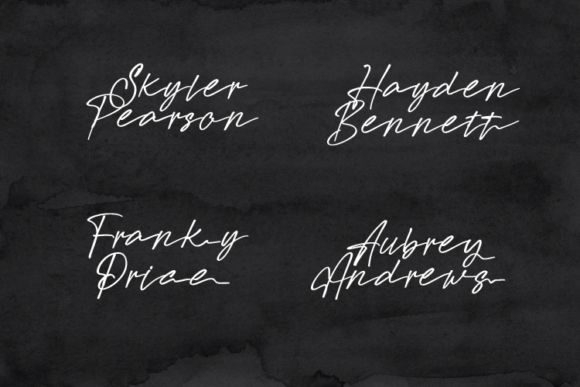 Skyler
Pearson
Hayden
Bennett
Franky
Price
Aubrey
Andrews